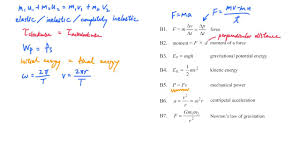 m₁u₁ + m₂u₂ = m₁v₁ + m₂v₂
elastic / inelastic / completely inelastic
τclockwise = τanticlockwise
Wp = Ps
initial energy = final energy
ω = 2π/T v = 2πr/T
F = ma F = (mv - mu)/t
B1. F = m Δv/Δt = Δp/Δt force
perpendicular distance
B2. moment = F × d moment of a force
B3. Ep = mgh gravitational potential energy
B4. Ek = ½mv² kinetic energy
B5. P = Fv mechanical power
B6. a = v²/r = ω²r centripetal acceleration
B7. F = Gm₁m₂/r² Newton's law of gravitation